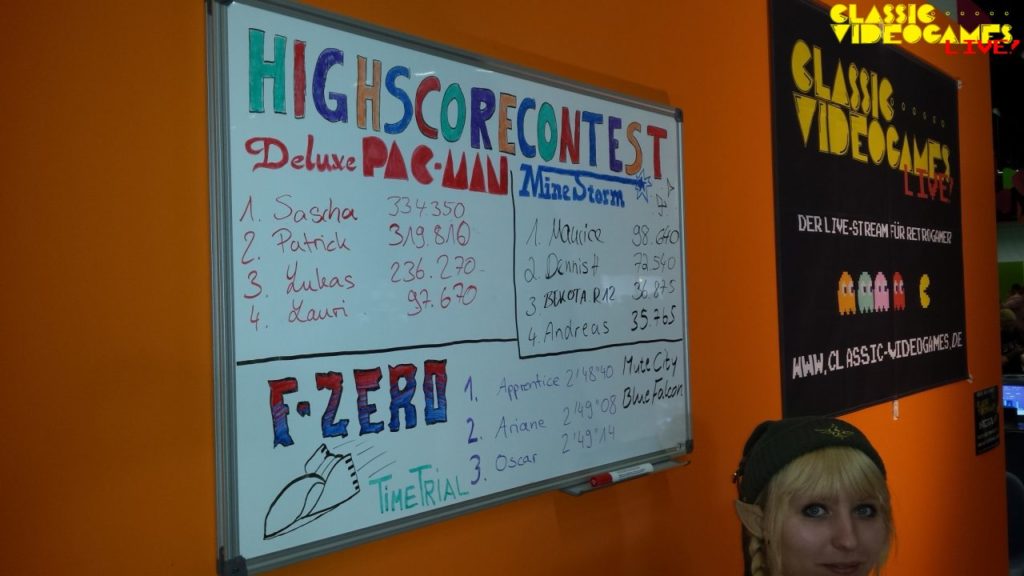 HIGHSCORECONTEST
Deluxe PAC-MAN
1. Sascha 334.350
2. Patrick 319.810
3. Lukas 236.270
4. Lauri 97.670
MineStorm
1. Maurice 98.640
2. Dennis H 73.540
3 R12 36.875
4. Andreas 35.765
F-ZERO
TimeTrial
1. Apprentice 2'48"40
2. Ariane 2'49"08
3. Oscar 2'49"14
Mute City
Blue Falcon
CLASSIC
VIDEOGAMES
LIVE!
DER LIVE-STREAM FÜR RETROGAMER
WWW.CLASSIC-VIDEOGAMES.DE
CLASSIC
VIDEOGAMES
LIVE!